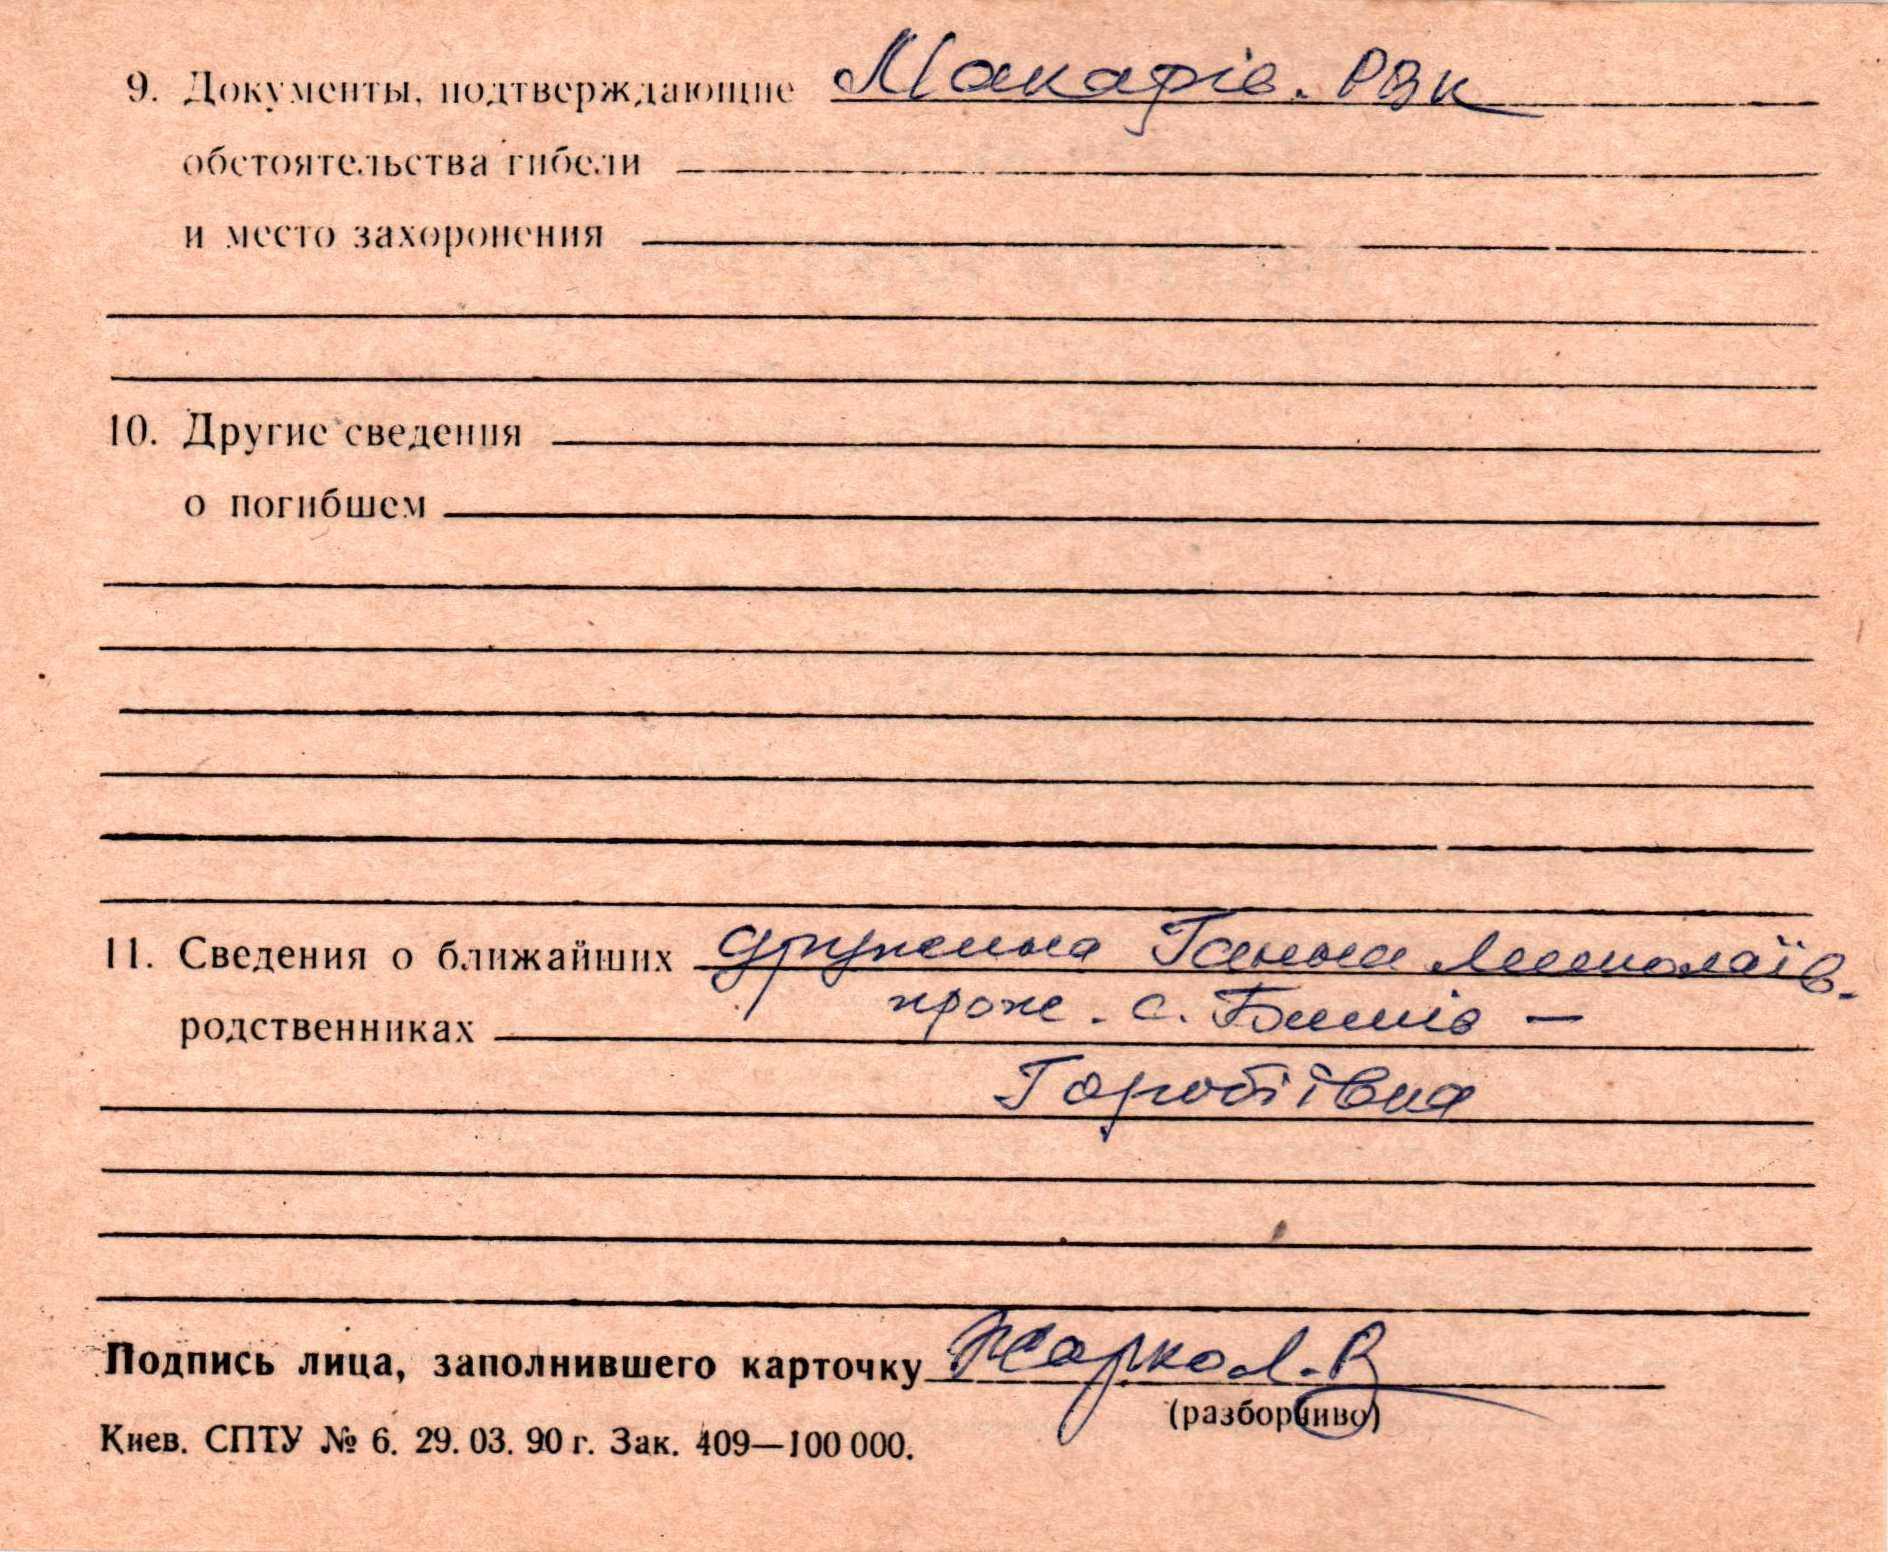 9. Документы, подтверждающие Макарів. РВК
обстоятельства гибели
и место захоронения
10. Другие сведения
о погибшем
11. Сведения о ближайших дружина Ганна Миколаїв.
родственниках прож. с. Бишів —
Горобіївка
Подпись лица, заполнившего карточку Жарко Л. В
(разборчиво)
Киев. СПТУ № 6. 29. 03. 90 г. Зак. 409—100 000.